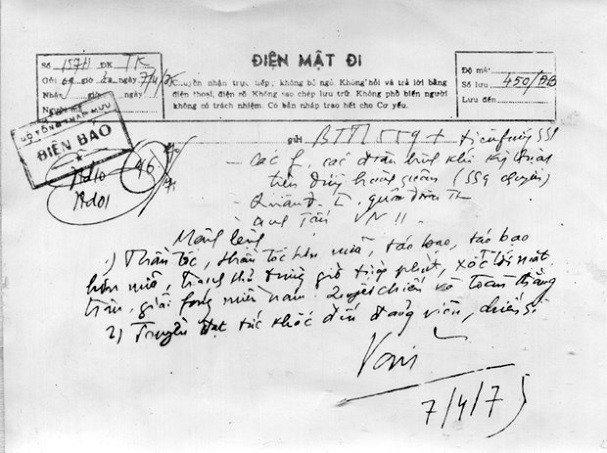 ĐIỆN MẬT ĐI
Số 157H ĐK TK
Gửi giờ ngày 7/4/75
Nhận giờ ngày
Người
Chuyển nhận trực tiếp; không bỏ ngỏ. Không hỏi và trả lời bằng
điện thoại, điện rõ. Không sao chép lưu trữ. Không phổ biến người
không có trách nhiệm. Có bản nháp trao hết cho Cơ yếu.
Độ mật
Số lưu 450/ĐB
Lưu đến
BỘ TỔNG THAM MƯU
ĐIỆN BÁO
46
gửi BTM 559 + tiền phương 559
- Các f, các đơn binh khí kỹ thuật
trên đường hành quân (559 chuyển)
- Quân đ. I, quân đoàn
Mệnh lệnh
1) Thần tốc, thần tốc hơn nữa, táo bạo, táo bạo
hơn nữa, tranh thủ từng giờ từng phút, xốc tới mặt
trận, giải fóng miền nam. Quyết chiến và toàn thắng
2) Truyền đạt tức khắc đến đảng viên, chiến sĩ
Văn
7/4/75